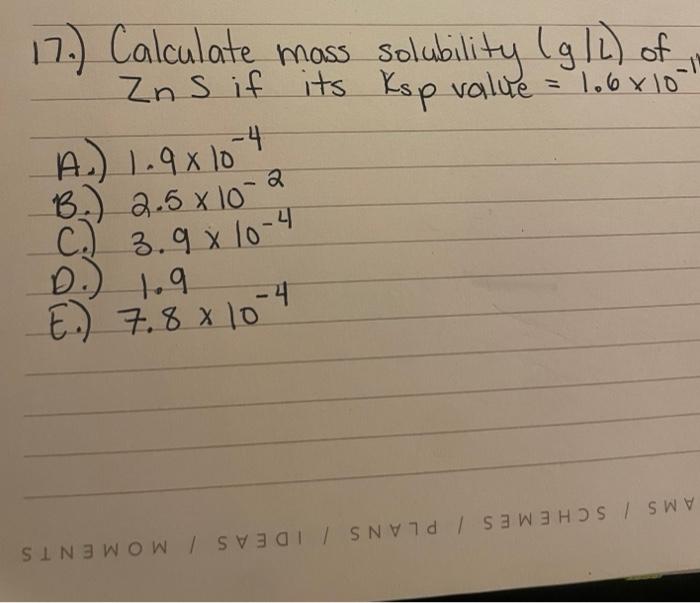 17.) Calculate mass solubility (g/L) of
ZnS if its Ksp value = 1.6 x 10⁻¹¹
A.) 1.9 x 10⁻⁴
B.) 2.5 x 10⁻²
C.) 3.9 x 10⁻⁴
D.) 1.9
E.) 7.8 x 10⁻⁴
AMS / SCHEMES / PLANS / IDEAS / MOMENTS